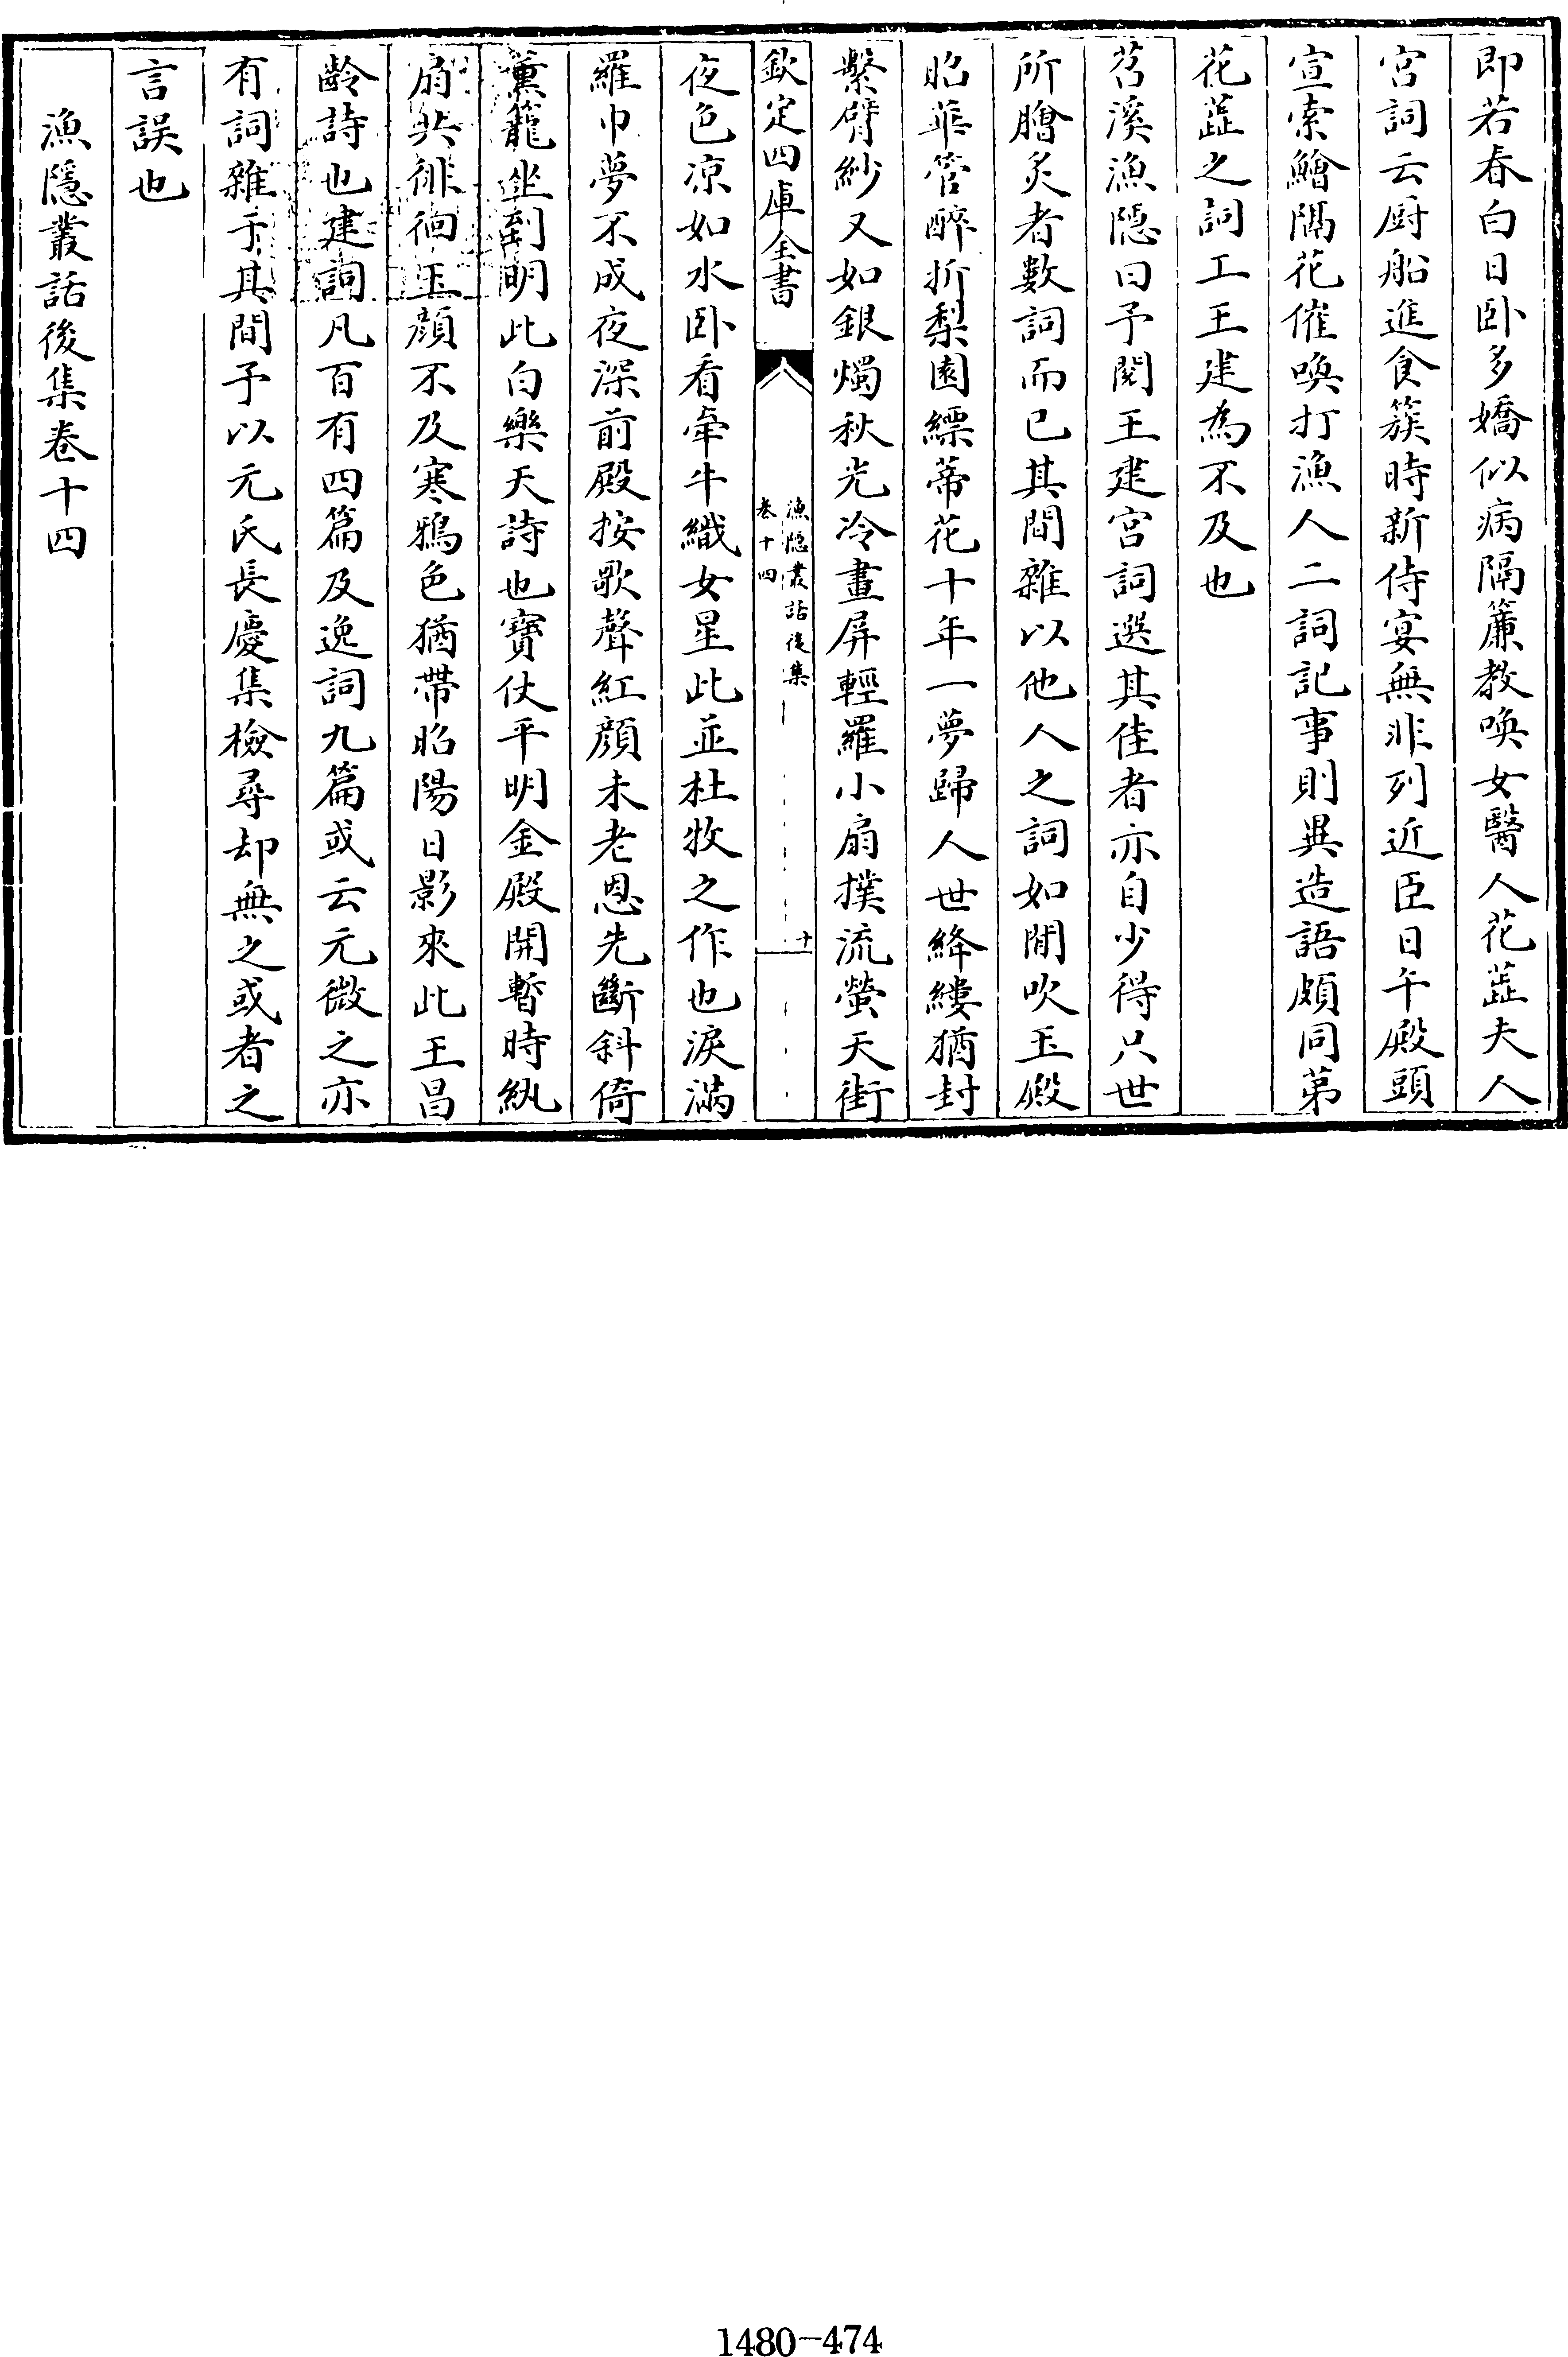 即若春白日卧多嬌似病隔簾教喚女醫人花蕋夫人
宮詞云厨船進食簇時新侍宴無非列近臣日午殿頭
宣索鱠隔花催喚打漁人二詞記事則異造語頗同第
花蕋之詞工王建為不及也
苕溪漁隱曰予閱王建宮詞選其佳者亦自少得只世
所膾炙者數詞而已其間雜以他人之詞如閒吹玉殿
昭華管醉折梨園縹蒂花十年一夢歸人世絳縷猶封
繫臂紗又如銀燭秋光冷畫屏輕羅小扇撲流螢天街
欽定四庫全書
漁隱叢話後集
卷十四
十
夜色凉如水卧看牽牛織女星此並杜牧之作也淚滿
羅巾夢不成夜深前殿按歌聲紅顔未老恩先斷斜倚
薰籠坐到明此白樂天詩也寶仗平明金殿開暫時紈
扇共徘徊玉顔不及寒鴉色猶帶昭陽日影來此王昌
齡詩也建詞凡百有四篇及逸詞九篇或云元微之亦
有詞雜于其間予以元氏長慶集檢尋却無之或者之
言誤也
漁隱叢話後集卷十四
1480-474